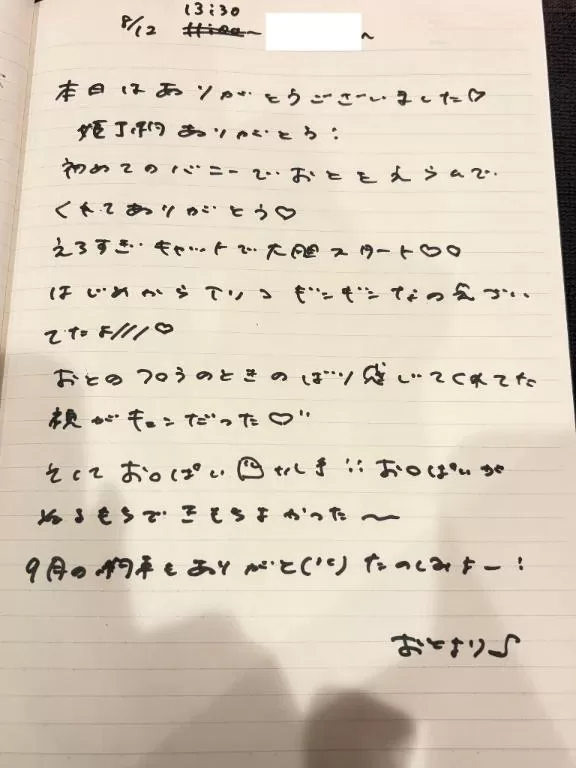 13:30
8/12 〜 〜
本日はありがとうございました♡
姫予約ありがとう!
初めてのバニーでおとをえらんで
くれてありがとう♡
えろすぎキャットで大胆スタート♡♡
はじめから ギンギンなの気づい
てたよ///♡
おとのフロうのときのばり感じてくれてた
顔がキュンだった♡
そしておっぱい お○ぱいが
きもちよかった〜
9月の約束もありがと(^^)たのしみよー!
おとより♪